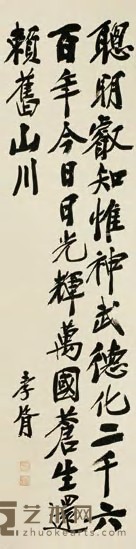 聰明叡知惟神武德化二千六
百年今日日光輝萬國蒼生還
賴舊山川
孝胥